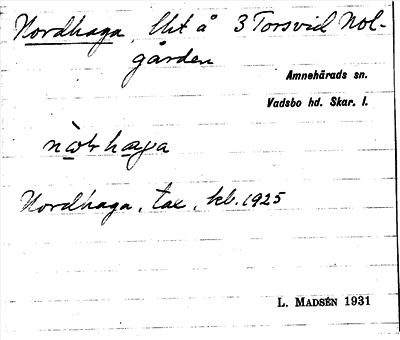 Nordhaga, lht å 3 Torsvid Nol-
gården
Amnehärads sn.
Vadsbo hd. Skar. l.
haga
Nordhaga, tax, kb. 1925
L. MADSÉN 1931